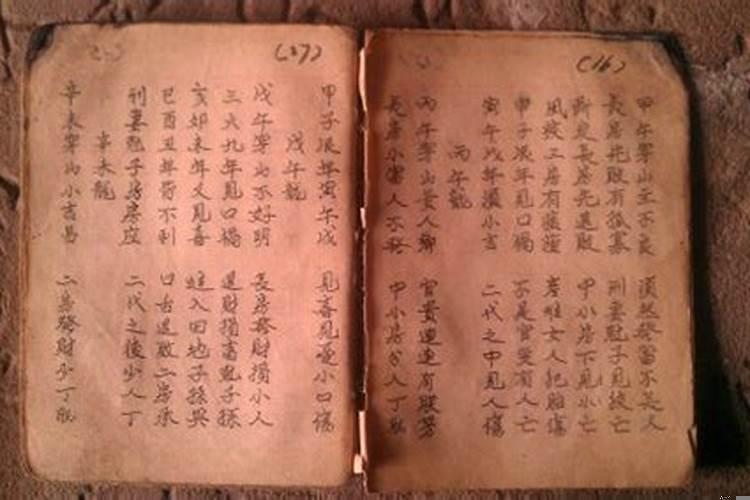 (16)
甲午穿山主不良 須然發富不是人
長房先敗有孤寡 刑妻尅子見損亡
長房先退敗 中小房下見小亡
風疾三房有 女人把胎傷
申子辰年見口禍 不是官災有人亡
寅午戌年損小言 二代之中見人傷
丙午龍
丙午穿山貴人鄉 官貴連連有
長房小富人不發 中小房分人丁
(17)
甲子辰年寅午戌 見喜見憂小口傷
戊午龍
戊午穿山不好明 長房發財損小人
三六九年見口禍 退財損畜尅子孫
亥卯未年又見喜 蛙入田地子孫興
巳酉丑年 不利 口舌退敗二房承
刑妻尅子房房應 二代之後少人丁
辛未龍
辛未穿山小吉昌 二房發財少丁